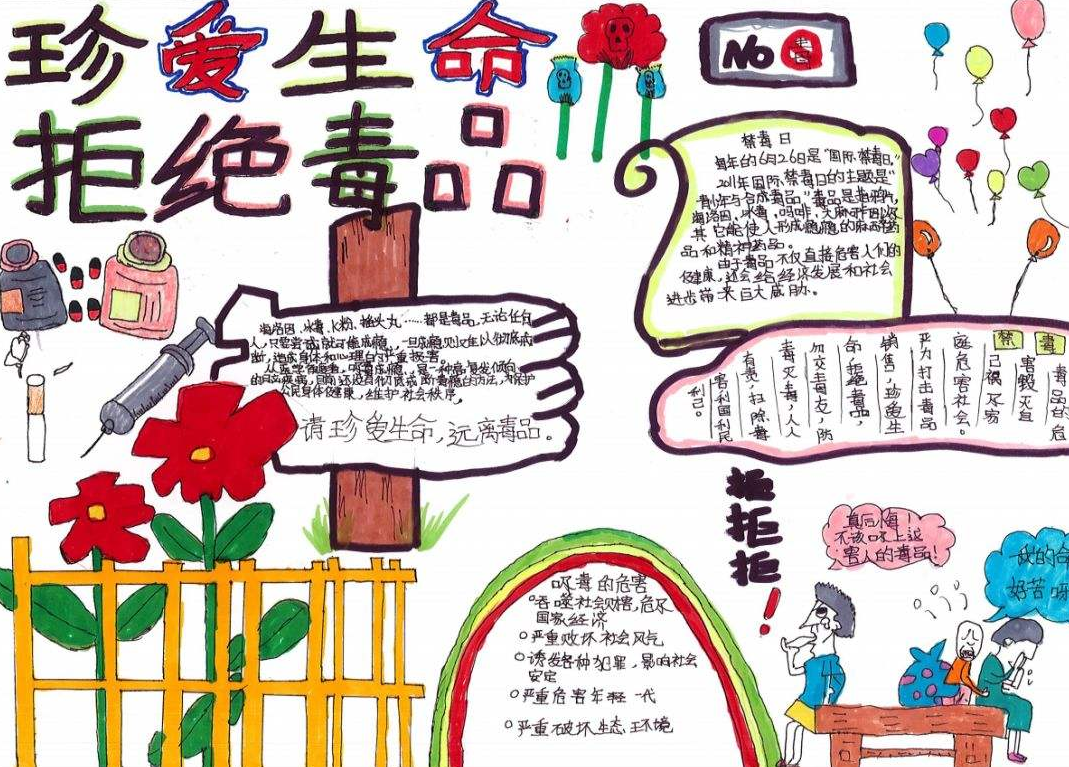 珍爱生命
拒绝毒品
No 毒
禁毒日
每年的6月26日是“国际禁毒日。”
2011年国际禁毒日的主题是“
青少年与合成毒品”毒品是指鸦片,
海洛因、冰毒,吗啡,大麻,可卡因以及
其它能使人形成瘾癖的麻醉药
品和精神药品。
由于毒品不仅直接危害人们的
健康,还会给经济发展和社会
进步带来巨大威胁。
海洛因、冰毒、K粉、摇头丸……都是毒品,无论任何
人,只要尝试就可能成瘾,一旦成瘾则
断,造成身体和心理的严重损害。
公民身体健康,维护社会秩序。
请珍爱生命,远离毒品。
禁毒
毒品的危
害毁灭自
己祸及家
庭危害社会。
严力打击毒品
销售,珍爱生
命,拒绝毒品,
勿交毒友,防
毒灭毒,人人
有责,扫除毒
害利国利民
利己。
拒拒拒!
吸毒的危害
吞噬社会财富,危及
国家经济
严重败坏社会风气
诱发各种犯罪,影响社会
安定
严重危害年轻一代
严重破坏生态环境
真后悔!
不该吸上这
害人的毒品!
我的命
好苦呀